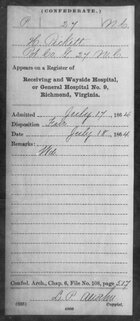 (CONFEDERATE.)
P 27 N.C.
H. Pickett
Pvt Co. G. 27 N.C.
Appears on a Register of
Receiving and Wayside Hospital,
or General Hospital No. 9,
Richmond, Virginia.
Admitted July 17, 1864
Disposition
July 18, 1864
Remarks:
Wd
Confed. Arch., Chap. 6, File No. 108, page 517
Copyist.